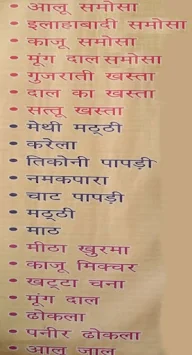 • आलू समोसा
• इलाहाबादी समोसा
• काजू समोसा
• मूंग दाल समोसा
• गुजराती खस्ता
• दाल का खस्ता
• सत्तू खस्ता
• मेथी मट्ठी
• करेला
• तिकोनी पापड़ी
• नमकपारा
• चाट पापड़ी
• मट्ठी
• माठ
• मीठा खुरमा
• काजू मिक्चर
• खट्टा चना
• मूंग दाल
• ढोकला
• पनीर ढोकला
• आलू जाल